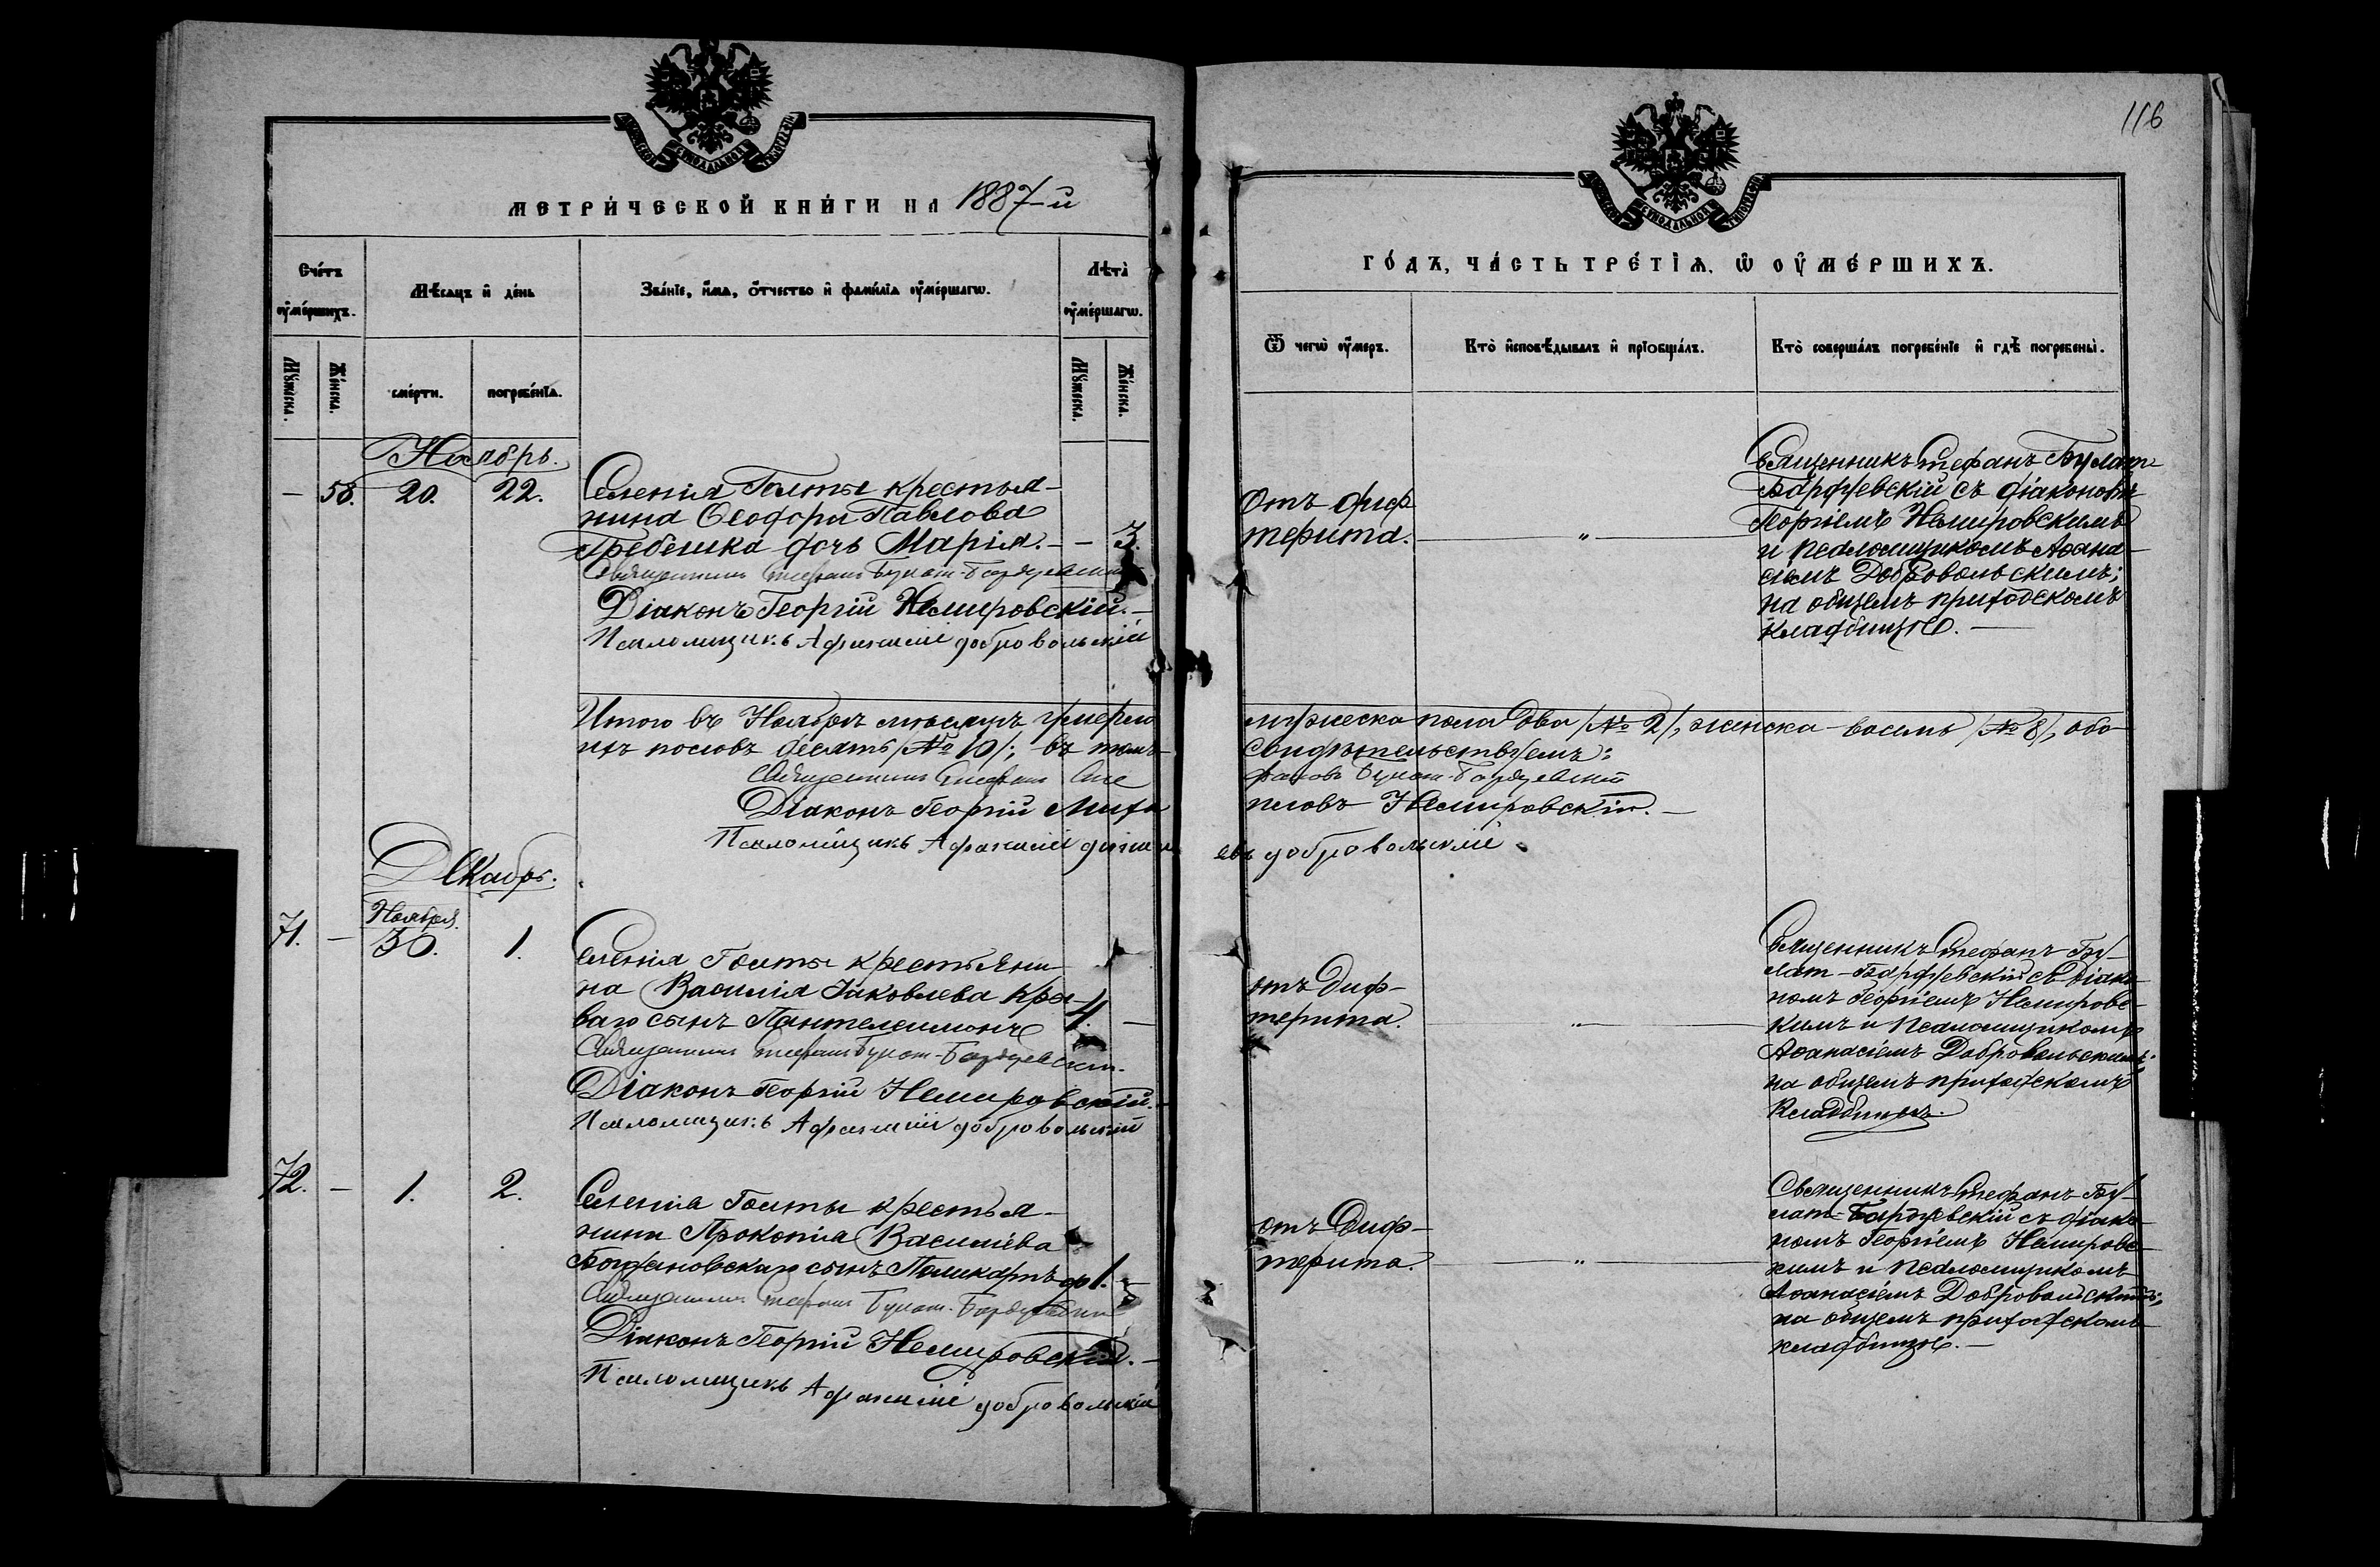 116
МЕТРИ́ЧЕСКОЙ КНИ́ГИ НА 1887-й
ГО́ДЪ, ЧА́СТЬ ТРЕ́ТІѦ, Ѡ ОУ҆МЕ́РШИХЪ.
Сче́тъ оу҆ме́ршихъ.
Мѣсяцъ и҆ де́нь
Зва́нїе, и҆́мѧ, ѻ҆́тчество и҆ фами́лїа оу҆ме́ршагѡ.
Лѣта̀ оу҆ме́ршагѡ.
Ѿ чегѡ̀ оу҆́меръ.
Кто̀ и҆сповѣ́дывалъ и҆ прїобща́лъ.
Кто̀ соверша́лъ погребе́нїе и҆ гдѣ̀ погребены̀.
Мꙋ́жеска.
Же́нска.
сме́рти.
погребе́нїѧ.
Мꙋ́жеска.
Же́нска.
Ноябрь.
— 58. 20. 22.
Селенія Голты крестья-
нина Ѳеодора Павлова
Гребеника дочь Марія. — — 3.
Священникъ Стефанъ Булат-Бардуевскій
Діаконъ Георгій Немировскій.—
Псаломщикъ Афанасій добровольскій
Отъ диф
терита.
„
Священникъ Стефанъ Булат-
Бардуевскій съ діакономъ
Георгіемъ Немировскимъ
и псаломщикомъ Аѳана-
сіемъ Добровольскимъ;
на общемъ приходскомъ
кладбищѣ.—
Итого въ Ноябрѣ мѣсяцѣ умерло мужеска пола два /№ 2/, женска — восемь /№ 8/, обо-
ихъ половъ десять /№ 10/; въ томъ свидѣтельствуемъ:
Священникъ Стефанъ Булат-Бардуевскій
Діаконъ Георгій Миха иловъ Немировскій.—
Псаломщикъ Афанасій добровольскій
Декабрь.
Ноября
71. — 30. 1.
Селенія Голты крестьяни-
на Василія Іаковлева Кри-
ваго сынъ Пантелеимонъ 4. —
Священникъ Стефанъ Булат-Бардуевскій
Діаконъ Георгій Немировскій.—
Псаломщикъ Афанасій добровольскій
отъ Диф-
терита.
„
Священникъ Стефанъ Бу-
лат-Бардуевскій съ діако-
номъ Георгіемъ Немировс-
кимъ и псаломщикомъ
Аѳанасіемъ Добровольскимъ;
на общемъ приходскомъ
Кладбищѣ.
72. — 1. 2.
Селенія Голты крестья-
нина Прокопія Василіева
Богдановскаго сынъ Поликарпъ 1. —
Священникъ Стефанъ Булат-Бардуевскій
Діаконъ Георгій Немировскій.—
Псаломщикъ Афанасій добровольскій
отъ Диф-
терита.
„
Священникъ Стефанъ Бу-
лат-Бардуевскій съ діако-
номъ Георгіемъ Немировс-
кимъ и псаломщикомъ
Аѳанасіемъ Добровольскимъ;
на общемъ приходскомъ
кладбищѣ.—